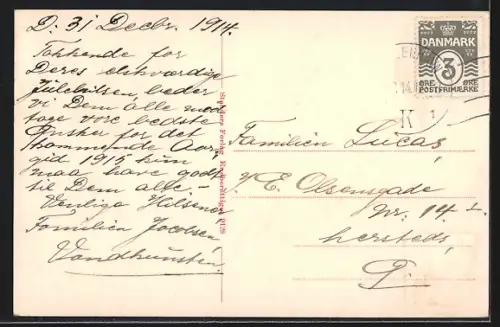 D. 31 Decbr. 1914.
Takkende for
Deres elskværdige
Julehilsen, beder
vi Dem alle mod
tage vore bedste
Ønsker for det
kommende Aar
gid 1915 kun
maa have godt
til Dem alle. –
Venlige Hilsener
Familien Jacobsen
Vandkunsten
DANMARK
3
ØRE ØRE
POSTFRIMÆRKE
K 1
Familien Lucas,
Olsensgade
nr. 14
hersteds,